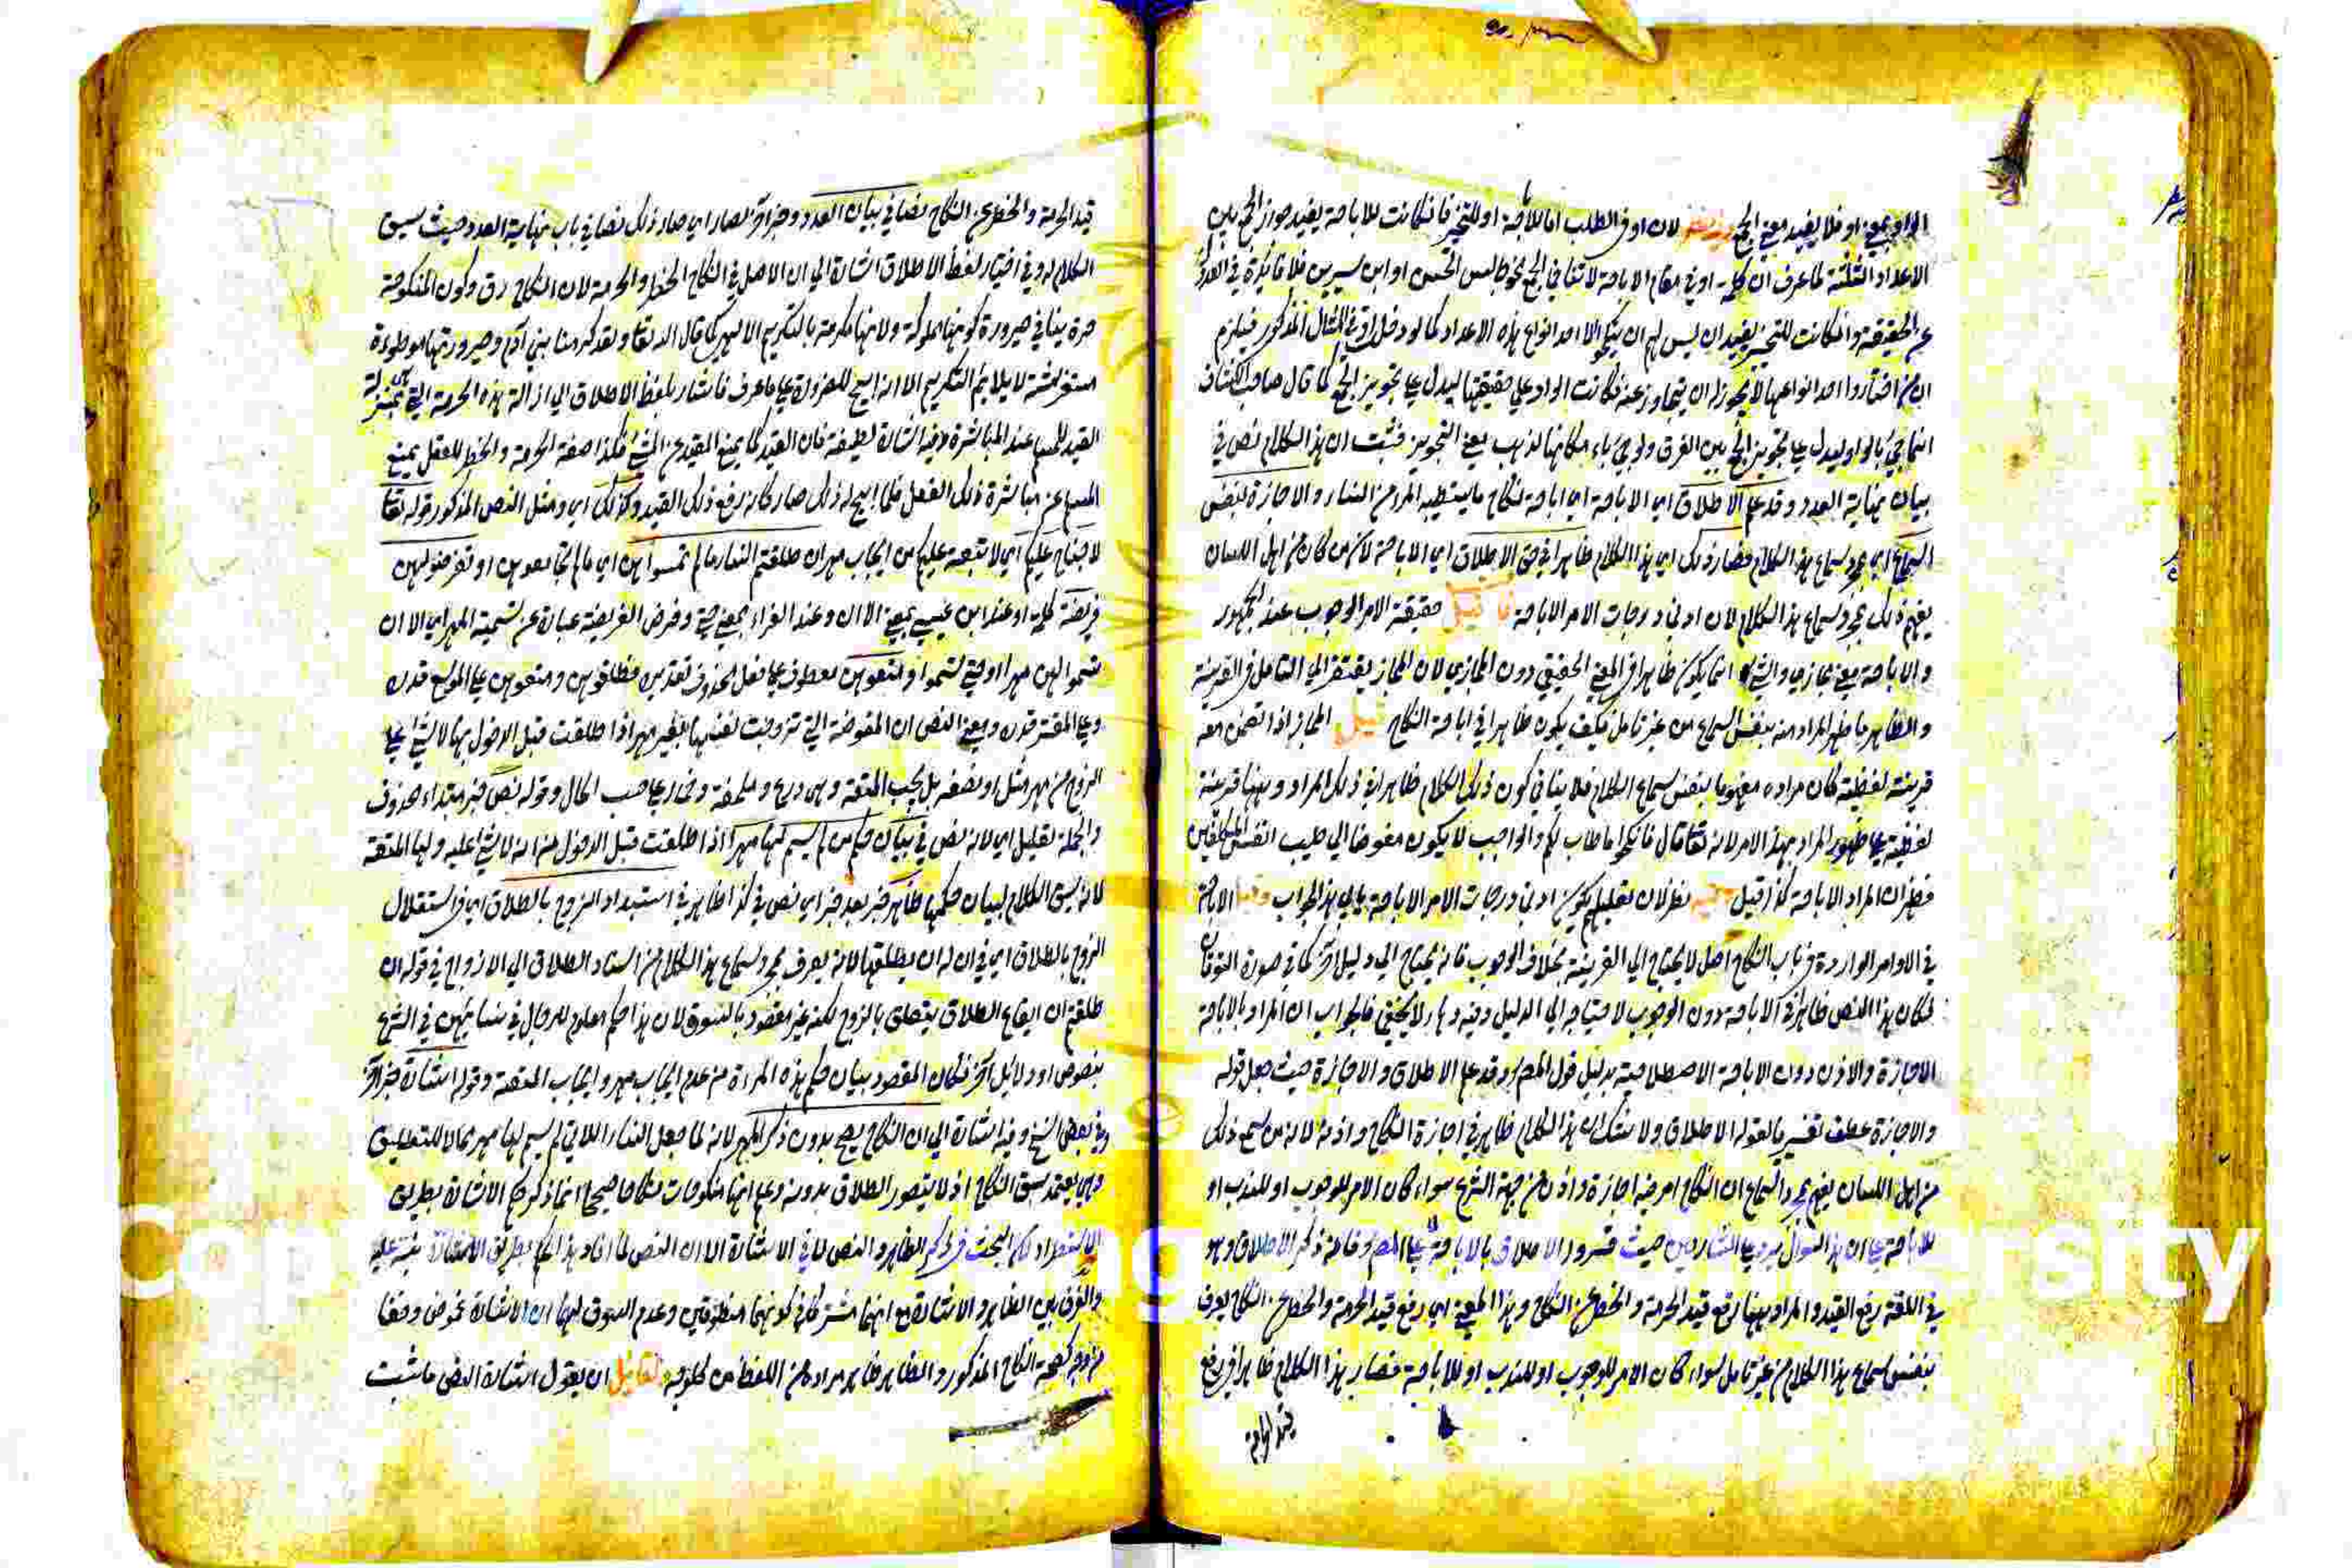 الواو بمعني او فلا يفيد معني الجمع لان او في الطلب اما للاباحة او للتخيير فان كانت للاباحة يفيد جواز الجمع بين
الاعداد الثلثة لما عرف ان كلمة او في مقام الاباحة لا تنافي الجمع نحو جالس الحسن او ابن سيرين فلا فائدة في العدول
عن الحقيقة وان كانت للتخيير يفيد ان ليس لهم ان ينكحوا الا احد انواع هذه الاعداد كما لو دخل او في المثال المذكور فيلزم
ان من اختار واحد انواعها لا يجوز له ان يتجاوز عنه فكانت الواو علي حقيقتها ليدل علي تجويز الجمع كما قال صاحب الكشاف
انما جئ بالواو ليدل علي تجويز الجمع بين الفرق ولو جئ باو مكانها لذهب معني التجويز فثبت ان هذا الكلام نص في
بيان نهاية العدد وقد علم الاطلاق اي الاباحة اي اباحة نكاح ما يستطيبه المرء من النساء والاجازة بنفس
السماع اي بمجرد سماع هذا الكلام فصار ذلك اي هذا الكلام ظاهرا في حق الاطلاق اي الاباحة لان من كان من اهل اللسان
يفهم ذلك بمجرد سماع هذا الكلام لان ادني درجات الامر الاباحة فان قيل حقيقة الامر الوجوب عند الجمهور
والاباحة معني مجازي والشئ انما يكون ظاهرا في المعني الحقيقي دون المجازي لان المجاز يفتقر الي التامل في القرينة
والظاهر ما ظهر المراد منه بنفس السماع من غير تامل فكيف يكون ظاهرا في اباحة النكاح قيل المجاز اذا انضمن معه
قرينة لفظية كان مراده مفهوما بنفس سماع الكلام فلا ينافي كون ذلك الكلام ظاهرا في ذلك المراد وههنا قرينة
لفظية علي ظهور المراد بهذا الامر لانه تعا قال فانكحوا ما طاب لكم والواجب لا يكون مفوضا الي طيب انفس المكلفين
فظهر ان المراد الاباحة كذا قيل نظر لان تعليلهم بكون ادني درجات الامر الاباحة يابي هذا الجواب الاباحة
في الاوامر الواردة في باب النكاح اصل لا يحتاج الي القرينة بخلاف الوجوب فانه يحتاج الي دليل آخر كما في صورة التوقان
فكان هذا النص ظاهرا في الاباحة دون الوجوب لاحتياجه الي الدليل وفيه لا يخفي فالجواب ان المراد بالاباحة
الاجازة والاذن دون الاباحة الاصطلاحية بدليل قول المصر وقد علم الاطلاق والاجازة حيث جعل قوله
والاجازة عطف تفسير بالقوله الاطلاق ولا شك ان هذا الكلام ظاهر في اجازة النكاح واذنه لانه من سمع ذلك
من اهل اللسان يفهم بمجرد السماع ان النكاح امر فيه اجازة واذن من جهة الشرع سواء كان الامر للوجوب او للندب او
للاباحة علي ان هذا السوال يرد علي الشارحين حيث فسروا الاطلاق بالاباحة لا علي المصر وفائدة ذكر الاطلاق وهو
في اللغة رفع القيد والمراد ههنا رفع قيد الحرمة والحظر عن النكاح وهذا المعني اي رفع قيد الحرمة والحظر عن النكاح يعرف
بنفس سماع هذا الكلام من غير تامل سواء كان الامر للوجوب او للندب او للاباحة فصار هذا الكلام ظاهرا في رفع
قيد الحرمة
قيد الحرمة والحظر عن النكاح نصا في بيان العدد وخبر آخر لصار اي صار ذلك نصا في باب نهاية العدد حيث سيق
الكلام له وفي اختيار لفظ الاطلاق اشارة الي ان الاصل في النكاح الحظر والحرمة لان النكاح رق وكون المنكوحة
حرة ينافي ضرورة كونها مملوكة ولانها مكرمة بالتكريم الالهي كما قال الله تعا ولقد كرمنا بني آدم وصيرورتها موطوءة
مستفرشة لا يلايم التكريم الا انه ابيح للضرورة علي ما عرف فاشار بلفظ الاطلاق الي ازالة هذه الحرمة التي هي بمنزلة
القيد للمسلم عند المباشرة وفيه اشارة لطيفة فان القيد كما يمنع المقيد عن المشي فكذا صفة الحرمة والحظر للعقل يمنع
المسلم عن مباشرة ذلك الفعل فلما ابيح له ذلك صار كانه رفع ذلك القيد وكذلك اي ومثل النص المذكور قوله تعا
لا جناح عليكم اي لا تبعة عليكم من ايجاب مهر ان طلقتم النساء ما لم تمسوهن اي ما لم تجامعوهن او تفرضوا لهن
فريضة كلمة او عند ابن عيسي بمعني الا ان وعند الفراء بمعني حتي وفرض الفريضة عبارة عن تسمية المهر اي الا ان
تسموا لهن مهرا او حتي تسموا ومتعوهن معطوف علي فعل محذوف تقديره فطلقوهن ومتعوهن علي الموسع قدره
وعلي المقتر قدره ومعني النص ان المفوضة التي تزوجت نفسها بغير مهر اذا طلقت قبل الدخول بها لا شئ علي
الزوج من مهر مثل او نصفه بل يجب المتعة وهي درع وملحفة وخمار علي حسب الحال وقوله نص خبر مبتداء محذوف
والجملة تعليل اي لانه نص في بيان حكم من لم يسم لها مهرا اذا طلقت قبل الدخول من انه لا شئ عليه ولها المتعة
لانه سيق الكلام لبيان حكمها ظاهر خبر بعد خبر اي نص في كذا ظاهر في استبداد الزوج بالطلاق اي في استقلال
الزوج بالطلاق اي في ان له ان يطلقها لانه يعرف بمجرد سماع هذا الكلام من اسناد الطلاق الي الازواج في قوله ان
طلقتم ان ايقاع الطلاق يتعلق بالزوج لكنه غير مقصود بالسوق لان هذا حكم معلوم للرجال في نسائهن في الشرع
بنصوص او دلائل آخر فكان المقصود بيان حكم هذه المرأة من عدم ايجاب مهر وايجاب المتعة وقوله اشارة خبر آخر
وفي بعض النسخ وفيه اشارة الي ان النكاح يصح بدون ذكر المهر لانه لما جعل النساء اللاتي لم يسم لها مهر محلا للتطليق
وهي يعتمد سبق النكاح اذ لا يتصور الطلاق بدونه وعلم انها منكوحات نكاحا صحيحا انما ذكر حكم الاشارة بطريق
الاستطراد لان البحث في ذكر الظاهر والنص لا في الاشارة الا ان النص لما افاد هذا الحكم بطريق الاشارة نبه عليه
والفرق بين الظاهر والاشارة مع انهما مشتركان في كونهما منطوقين وعدم السوق لهما ان الاشارة غموض وخفاء
من وجه كصحة النكاح المذكور والظاهر ظاهر مراده من اللفظ من كل وجه لقائل ان يقول اشارة النص ما ثبت